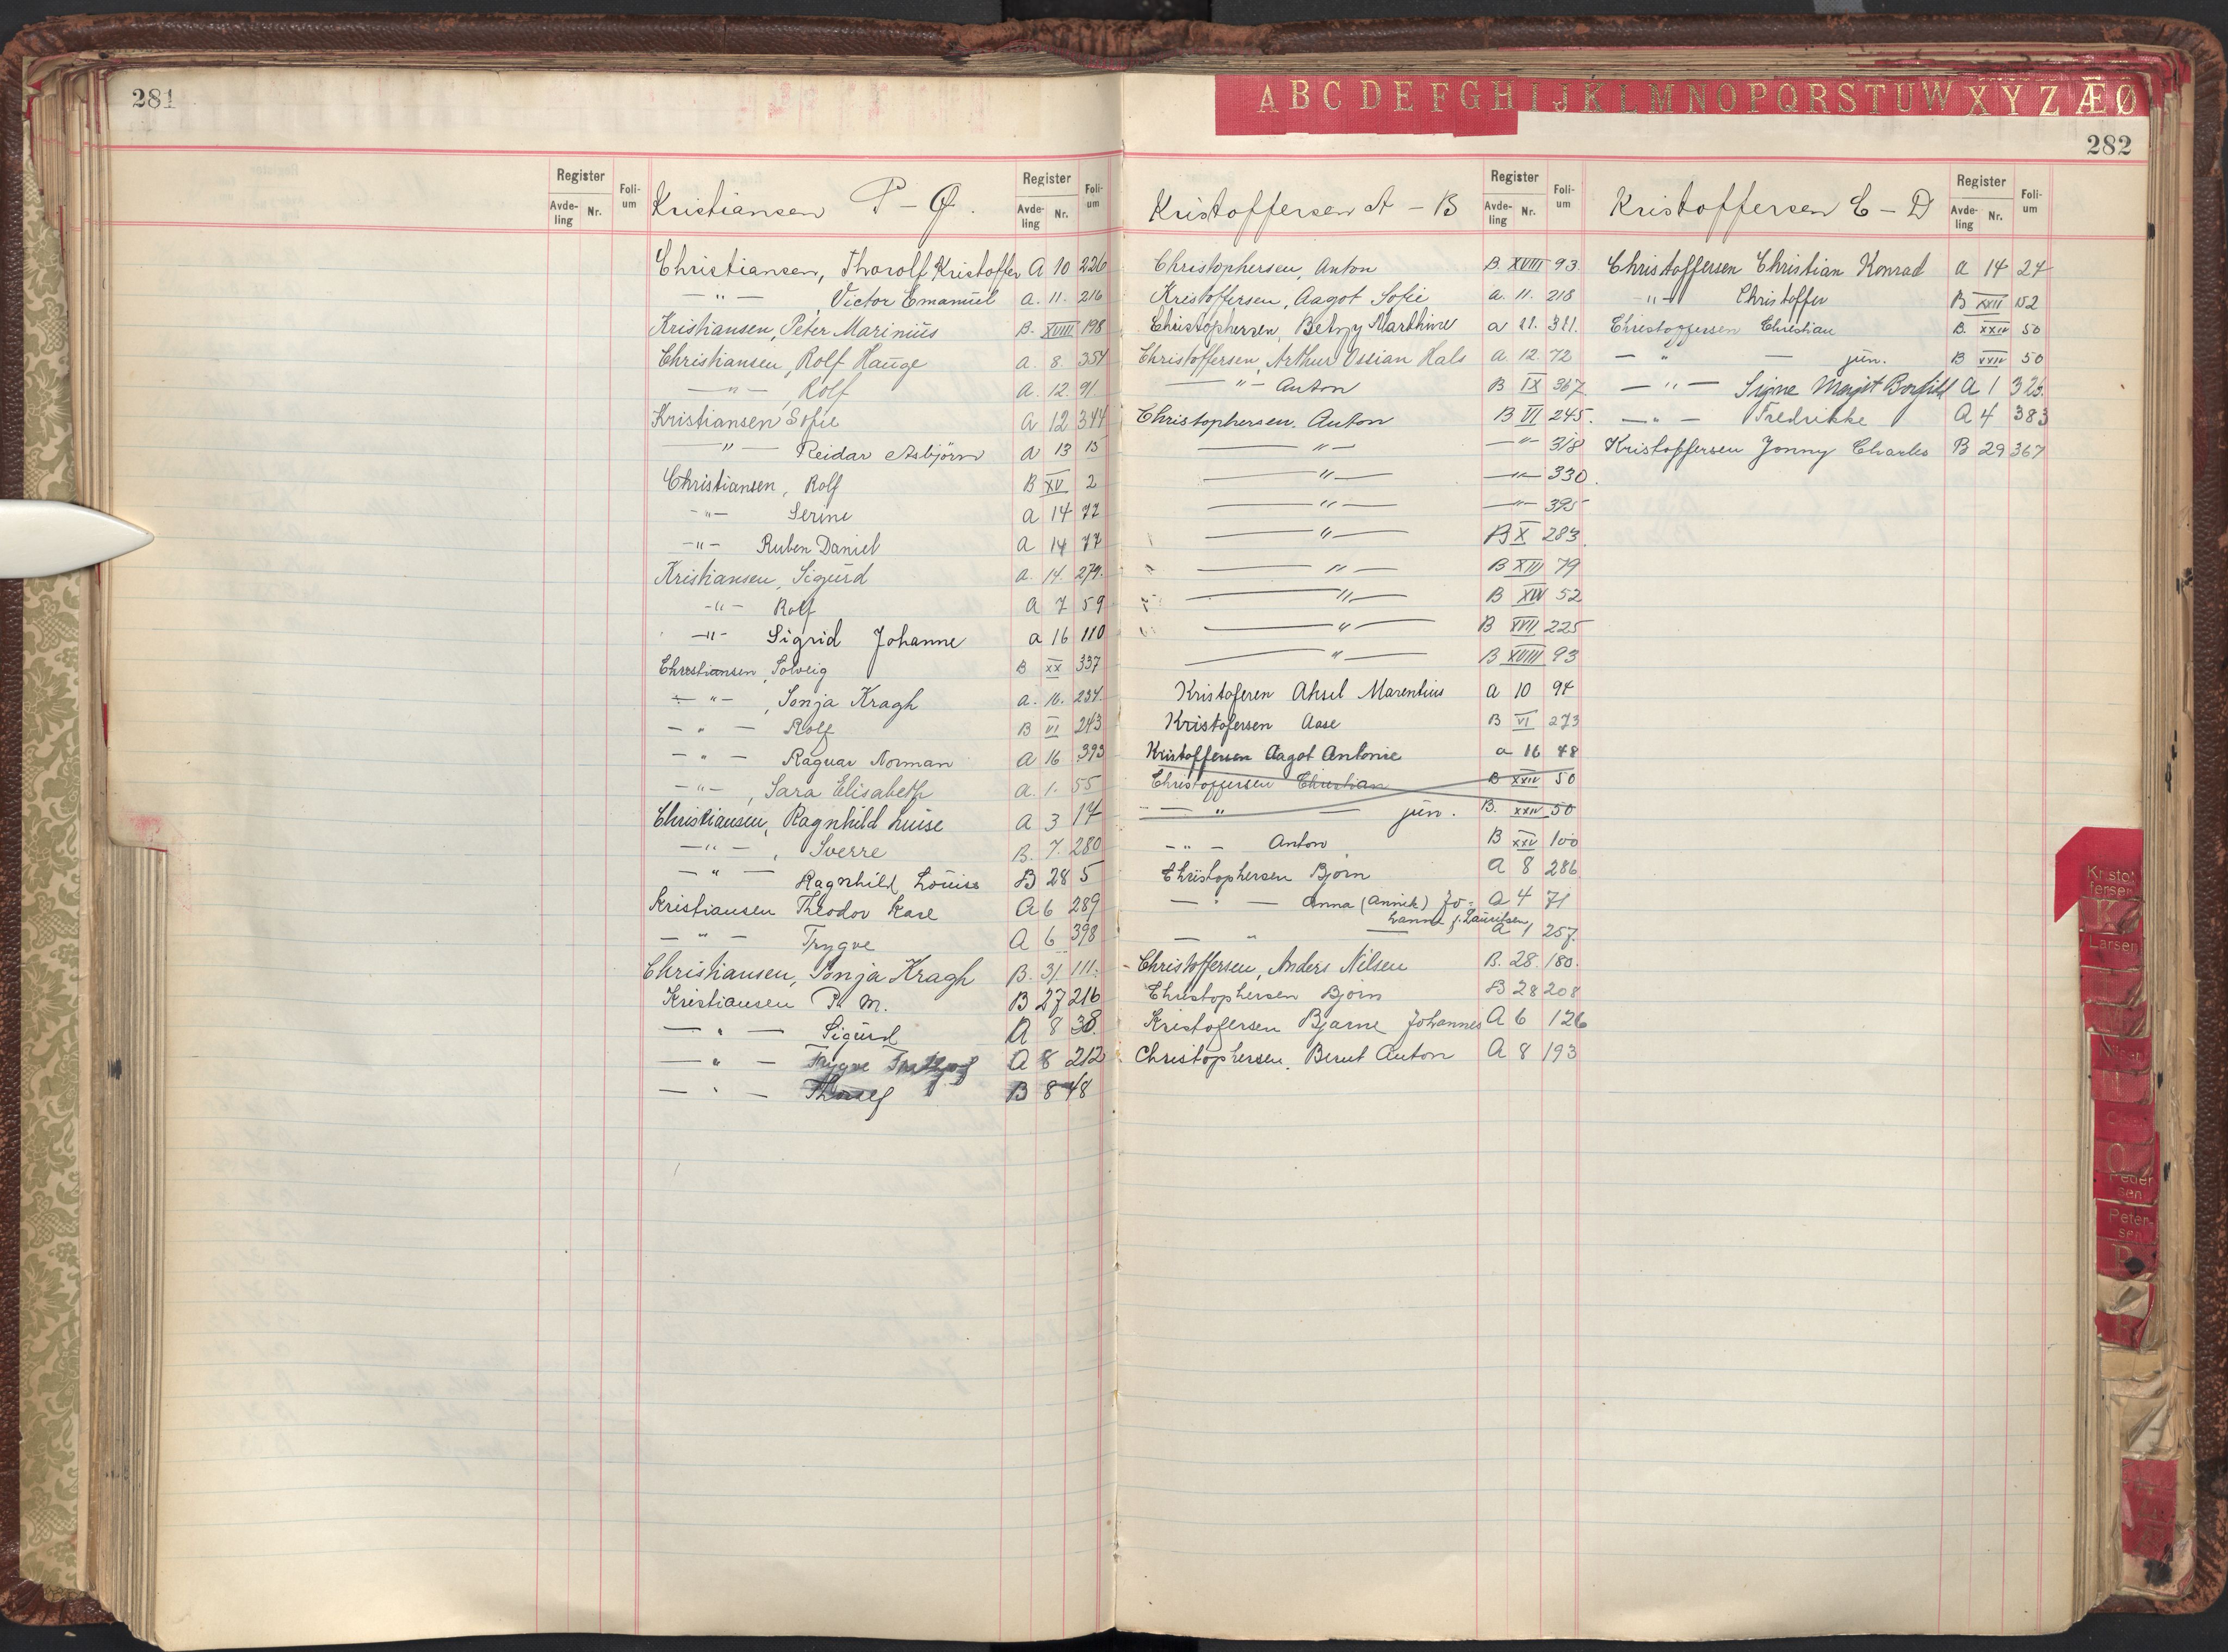 281
Register
Avde-ling Nr. Foli-um
Kristiansen P – Ø.
Register
Avde-ling Nr. Foli-um
Christiansen, Thorolf Kristoffer A 10 226
— " — , Victor Emanuel a. 11. 216
Kristiansen, Peter Marinius B. XVIII 198
Christiansen, Rolf Hauge a. 8 354
— " — , Rolf a. 12. 91.
Kristiansen Sofie a 12 344
— " — Reidar Asbjörn a 13 15
Christiansen, Rolf B XV 2
— " — Serine a 14 72
— " — Ruben Daniel a 14 77
Kristiansen, Sigurd a. 14. 279.
— " — Rolf a 7 59
— " — Sigrid Johanne a 16 110
Christiansen, Solveig B XX 337
— " — , Sonja Kragh a. 16. 234.
— " — Rolf B VI 243
— " — Ragnar Norman a 16 393
— " — , Sara Elisabeth a. 1. 55
Christiansen, Ragnhild Luise a 3 17
— " — , Sverre B. 7. 280
— " — Ragnhild Louise B 28 5
Kristiansen Theodor Kare A 6 289
— " — Trygve A 6 398
Christiansen, Sonja Kragh B. 31. 111.
Kristiansen P. M. B 27 216
— " — Sigurd A 8 38.
— " — Trygve A 8 212
— " — B 8 48
A B C D E F G H I J K L M N O P Q R S T U W X Y Z Æ Ø
282
Kristoffersen A – B
Register
Avde-ling Nr. Foli-um
Christophersen, Anton B. XVIII 93
Kristoffersen, Aagot Sofie a. 11. 218
Christophersen, Betzy Marthine a 11. 311.
Christoffersen, Arthur Ossian Hals a. 12. 72
— " — Anton B IX 367
Christophersen. Anton B VI 245.
— " — — " — 318
— " — — " — 330.
— " — — " — 395
— " — B X 283.
— " — B XII 79
— " — B XIV 52
— " — B XVII 225
— " — B XVIII 93
Kristoferen Aksel Marentius a 10 94
Kristofersen Aase B VI 273
Kristoffersen Aagot Antonie a 16 48
Christoffersen Christian B XXIV 50
— " — jun. B. XXIV 50
— " — Anton B XXV 100
Christophersen Bjorn A 8 286
— " — Anna (Annik) Jo- A 4 71
hanne f. Lauritsen,
— " — a 1 257.
Christoffersen, Anders Nilsen B. 28. 180.
Christophersen Bjorn B 28 208
Kristofersen Bjarne Johannes A 6 126
Christophersen. Bernt Anton A 8 193
Kristoffersen C – D
Register
Avde-ling Nr. Foli-um
Christoffersen Christian Konrad a 14 24
— " — Christoffer B XXII 152
Christoffersen Christian B. XXIV 50
— " — jun. B XXIV 50
— " — Signe Margit Borghild A 1 326.
— " — Fredrikke A 4 383
Kristoffersen Jonny Charles B 29 367
Kristof-
fersen
K
Larsen
O
Peder
sen
Peter-
sen
P